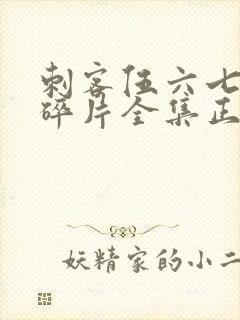 刺客伍六七
碎片全集正
妖精家的小二